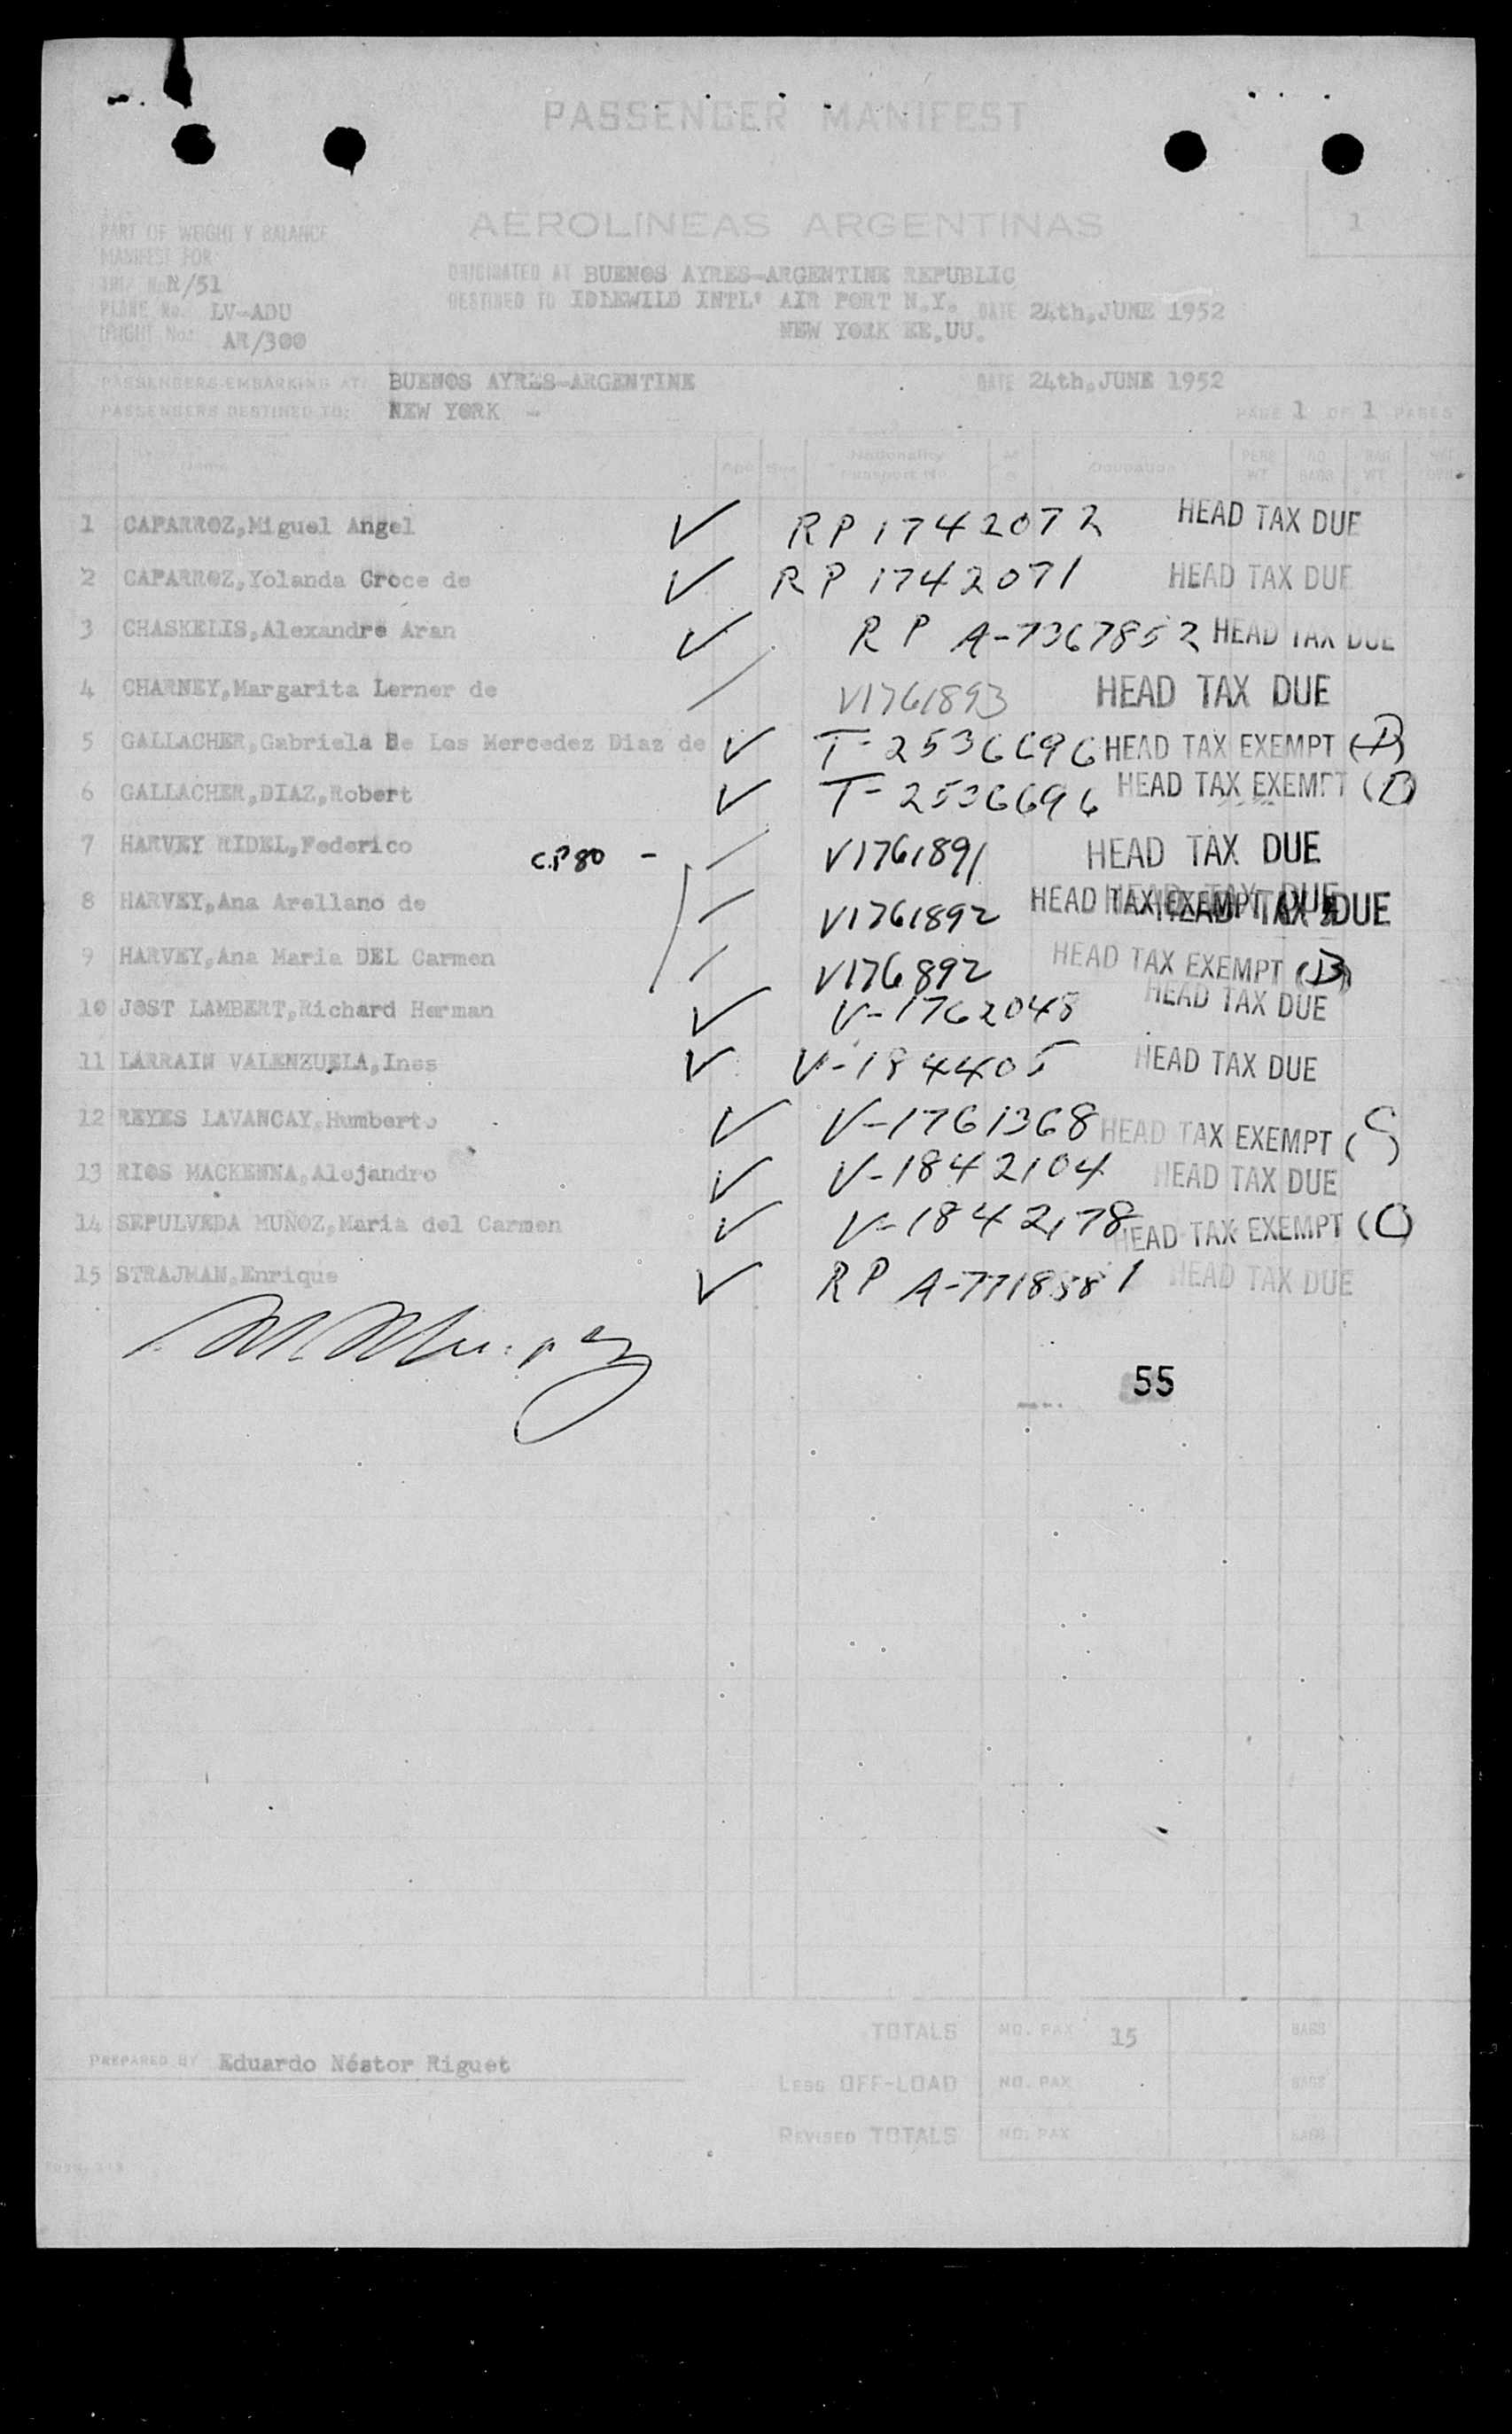 PASSENGER MANIFEST
AEROLINEAS ARGENTINAS
1
PART OF WEIGHT Y BALANCE
MANIFEST FOR
TRIP No. R/51
PLANE No. LV-ADU
FLIGHT No: AR/300
ORIGINATED AT BUENOS AYRES-ARGENTINE REPUBLIC
DESTINED TO IDLEWILD INTL' AIR PORT N.Y. DATE 24th,JUNE 1952
NEW YORK EE.UU.
PASSENGERS EMBARKING AT: BUENOS AYRES-ARGENTINE DATE 24th,JUNE 1952
PASSENGERS DESTINED TO: NEW YORK - PAGE 1 OF 1 PAGES
Name Age Sex Nationality Passport No Occupation PERS WT NO BAGS BAG WT
1 CAPARROZ,Miguel Angel ✓ RP 1742072 HEAD TAX DUE
2 CAPARROZ,Yolanda Croce de ✓ RP 1742071 HEAD TAX DUE
3 CHASKELIS,Alexandre Aran ✓ RP A-7367852 HEAD TAX DUE
4 CHARNEY,Margarita Lerner de / V1761893 HEAD TAX DUE
5 GALLACHER,Gabriela De Los Mercedez Diaz de ✓ T-2536696 HEAD TAX EXEMPT (D)
6 GALLACHER,DIAZ,Robert ✓ T-2536696 HEAD TAX EXEMPT (B)
7 HARVEY RIDEL,Federico C.P80 - / V1761891 HEAD TAX DUE
8 HARVEY,Ana Arellano de / V1761892 HEAD TAX EXEMPT HEAD TAX DUE
9 HARVEY,Ana Maria DEL Carmen / V176892 HEAD TAX EXEMPT (B)
10 JOST LAMBERT,Richard Herman ✓ V-1762048 HEAD TAX DUE
11 LARRAIN VALENZUELA,Ines ✓ V-184405 HEAD TAX DUE
12 REYES LAVANCAY,Humberto ✓ V-1761368 HEAD TAX EXEMPT (C)
13 RIOS MACKENNA,Alejandro ✓ V-1842104 HEAD TAX DUE
14 SEPULVEDA MUÑOZ,Maria del Carmen ✓ V-1842178 HEAD TAX EXEMPT (C)
15 STRAJMAN,Enrique ✓ RP A-7718581 HEAD TAX DUE
55
TOTALS NO. PAX 15 BAGS
PREPARED BY Eduardo Néstor Riguet
LESS OFF-LOAD NO. PAX BAGS
REVISED TOTALS NO. PAX BAGS